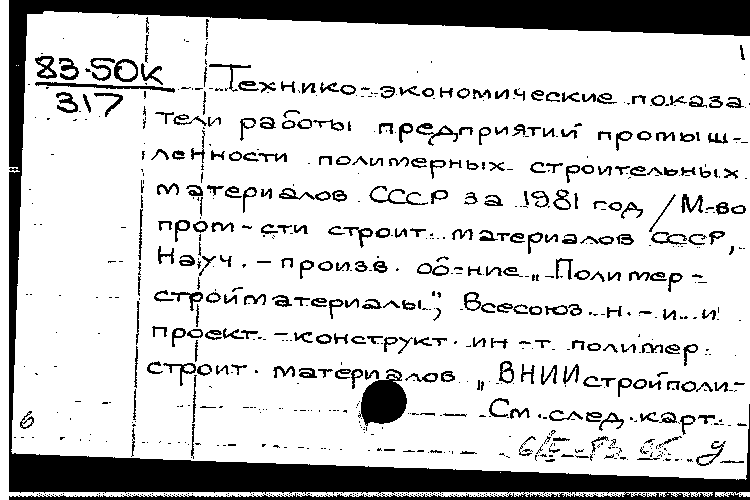 1
83-50К
317
Технико-экономические показа
тели работы предприятий промыш-
ленности полимерных строительных
материалов СССР за 1981 год / М-во
пром-сти строит. материалов СССР,
Науч.-произв. об-ние „Полимер-
стройматериалы", Всесоюз. н.-и. и
проект.-конструкт. ин-т полимер.
строит. материалов „ВНИИстройполи-
См. след. карт.
6